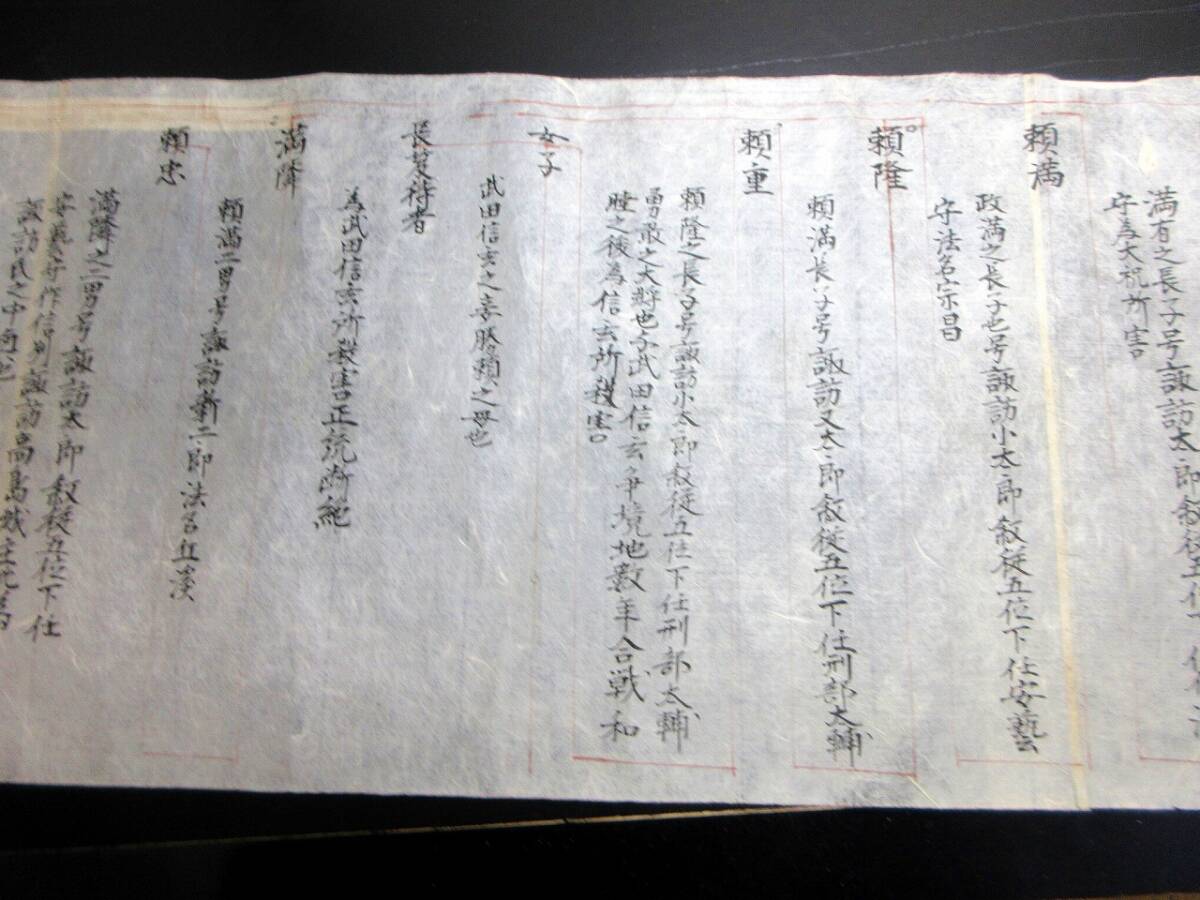 満有之長子号諏訪太郎叙従五位下任
守為大祝所害
頼満
政満之長子也号諏訪小太郎叙従五位下任安藝
守法名宗昌
頼隆
頼満長子号諏訪又太郎叙従五位下任刑部太輔
頼重
頼隆之長子号諏訪小太郎叙従五位下任刑部太輔
勇敢之大将也与武田信玄争境地数年合戦和
睦之後為信玄所殺害
女子
武田信玄之妾勝頼之母也
長笈侍者
為武田信玄所殺害正統断絶
満隣
頼満二男号諏訪新二郎法名丘渓
頼忠
満隣之二男号諏訪太郎叙従五位下任
安藝守作信州諏訪高島城主
諏訪氏之中興也